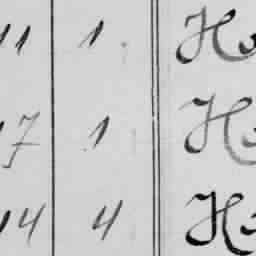 11 1 Ho
17 1 Ho
14 4 Ho